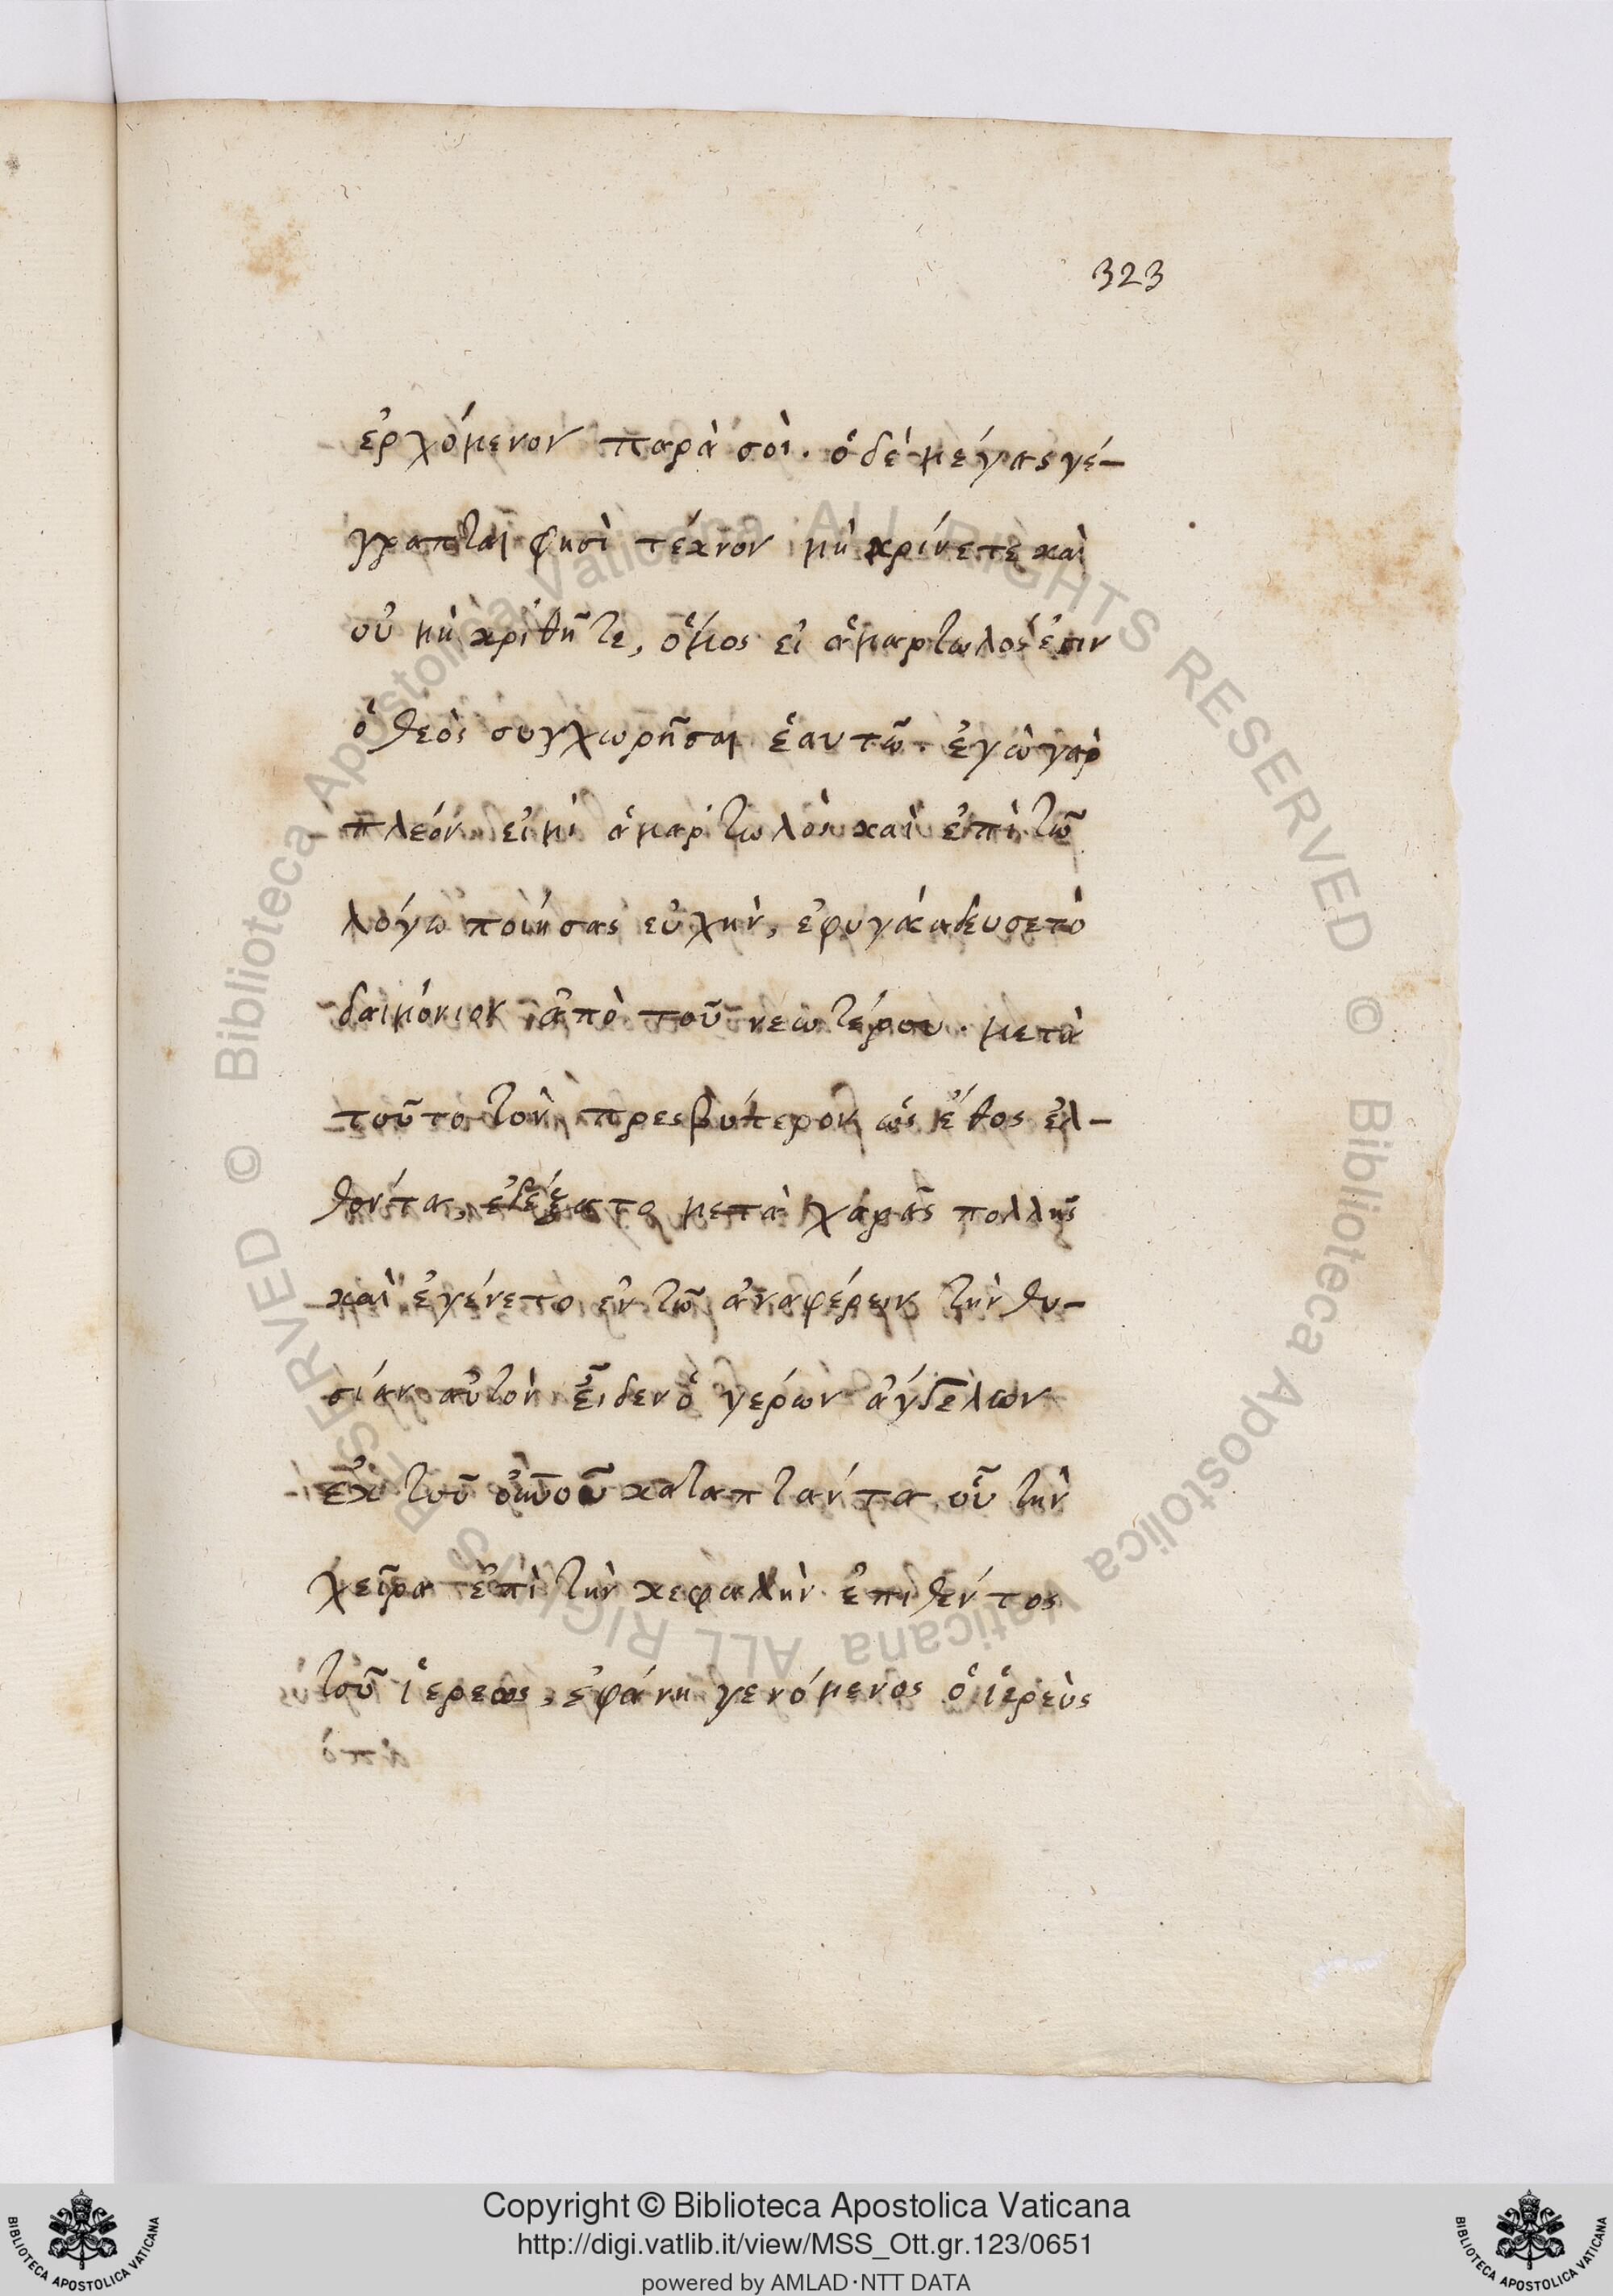 323
ἐρχόμενον παρὰ σοὶ. ὁ δὲ μέγας γέ-
γραπται φησὶ τέκνον μὴ κρίνετε καὶ
οὐ μὴ κριθῆτε, ὅμος εἰ ἁμαρτωλός ἐστιν
ὁ θεὸς συγχωρῆσαι ἑαυτῶ. ἐγὼ γὰρ
πλεόν εἰμὶ ἁμαρτωλὸν καὶ ἐπὶ τῶ
λόγω ποιήσας εὐχὴν, ἐφυγάκαδευσε τὸ
δαιμόνιον ἀπὸ τοῦ νεωτέρου. μετὰ
τοῦτο τὸν πρεσβύτερον ὡς ἔθος ἐλ-
θόντα, ἐδέξατο μετὰ χαρᾶς πολλῆς
καὶ ἐγένετο ἐν τῶ ἀναφέρειν τὴν θυ-
σίαν αὐτὸν εἶδεν ὁ γερών ἀγγέλων
ἐκ τοῦ οὐνοῦ καταπτάντα, οὗ τὴν
χεῖρα ἐπὶ τὴν κεφαλὴν ἐπιθέντος
τοῦ ἱερεως, ἐφάνη γενόμενος ὁ ἱερεὺς
Copyright © Biblioteca Apostolica Vaticana
http://digi.vatlib.it/view/MSS_Ott.gr.123/0651
powered by AMLAD·NTT DATA
BIBLIOTECA APOSTOLICA VATICANA
BIBLIOTECA APOSTOLICA VATICANA
© Biblioteca Apostolica Vaticana ALL RIGHTS RESERVED © Biblioteca Apostolica Vaticana ALL RIGHTS RESERVED